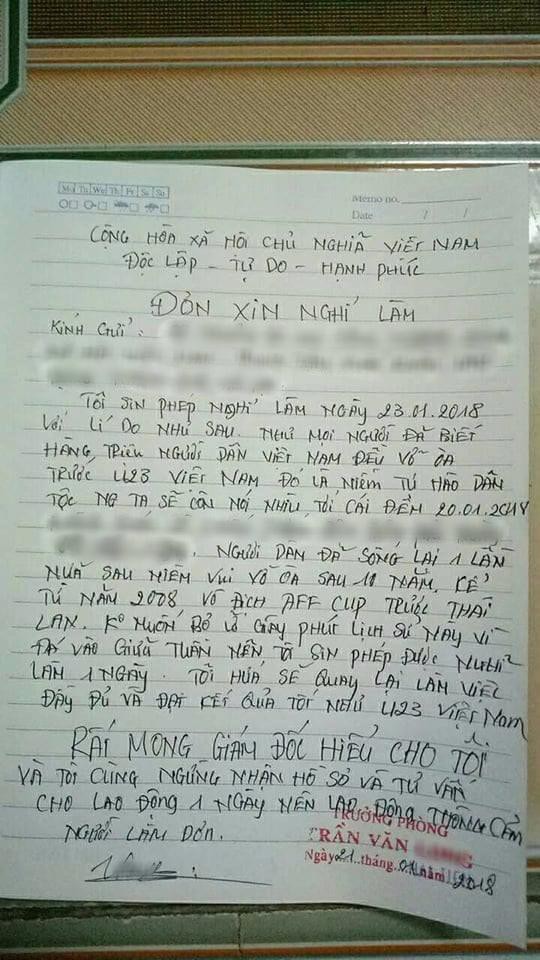 Mo Tu We Th Fr Sa Su
Memo no.
Date / /
CỘNG HÒA XÃ HỘI CHỦ NGHĨA VIỆT NAM
ĐỘC LẬP - TỰ DO - HẠNH PHÚC
ĐƠN XIN NGHỈ LÀM
KÍNH GỬI:
TÔI SIN PHÉP NGHỈ LÀM NGÀY 23.01.2018
VỚI LÍ DO NHƯ SAU. NHƯ MỌI NGƯỜI ĐÃ BIẾT
HÀNG TRIỆU NGƯỜI DÂN VIỆT NAM ĐỀU VỠ ÒA
TRƯỚC U23 VIỆT NAM ĐÓ LÀ NIỀM TỰ HÀO DÂN
TỘC NG TA SẼ CÒN NÓI NHIỀU TỚI CÁI ĐÊM 20.01.2018
NGƯỜI DÂN ĐÃ SỐNG LẠI 1 LẦN
NỮA SAU NIỀM VUI VỠ ÒA SAU 10 NĂM. KỂ
TỪ NĂM 2008 VÔ ĐỊCH AFF CUP TRƯỚC THÁI
LAN. Ko MUỐN BỎ LỠ GIÂY PHÚT LỊCH SỬ NÀY VÌ
ĐÁ VÀO GIỮA TUẦN NÊN TÔI SIN PHÉP ĐƯỢC NGHỈ
LÀM 1 NGÀY. TÔI HỨA SẼ QUAY LẠI LÀM VIỆC
ĐẦY ĐỦ VÀ ĐẠT KẾT QUẢ TỐT NHƯ U23 VIỆT Nam
RẤT MONG GIÁM ĐỐC HIỂU CHO TÔI
VÀ TÔI CŨNG NGỪNG NHẬN HỒ SƠ VÀ TƯ VẤN
CHO LAO ĐỘNG 1 NGÀY NÊN LAO ĐỘNG THÔNG CẢM
NGƯỜI LÀM ĐƠN.
TRƯỞNG PHÒNG
TRẦN VĂN
Ngày 21 tháng 01 năm 2018